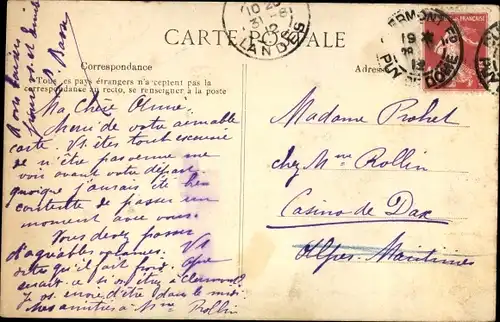 CARTE POSTALE
Correspondance
Tous les pays étrangers n'acceptent pas la
correspondance au recto, se renseigner à la poste
Adresse
CLERMONT-FD
19
PUY DE DOME
LANDES
FRANÇAISE
Ma Chère Aimée
Merci de votre aimable
carte. Vs. êtes tout excusée
de n'être pas venue me
voir avant votre départ
quoique j'aurais été bien
contente de passer un
moment avec vous.
Vous devez passer
d'agréables vacances. Vs
dites qu'il fait froid. Que
serait-ce si ous étiez à Clermont
d'être dans le midi
Mes amitiés à Mme Rollin
Bons baisers
Madame Prohet
chez Mme Rollin
Casino de Dax
Alpes-Maritimes